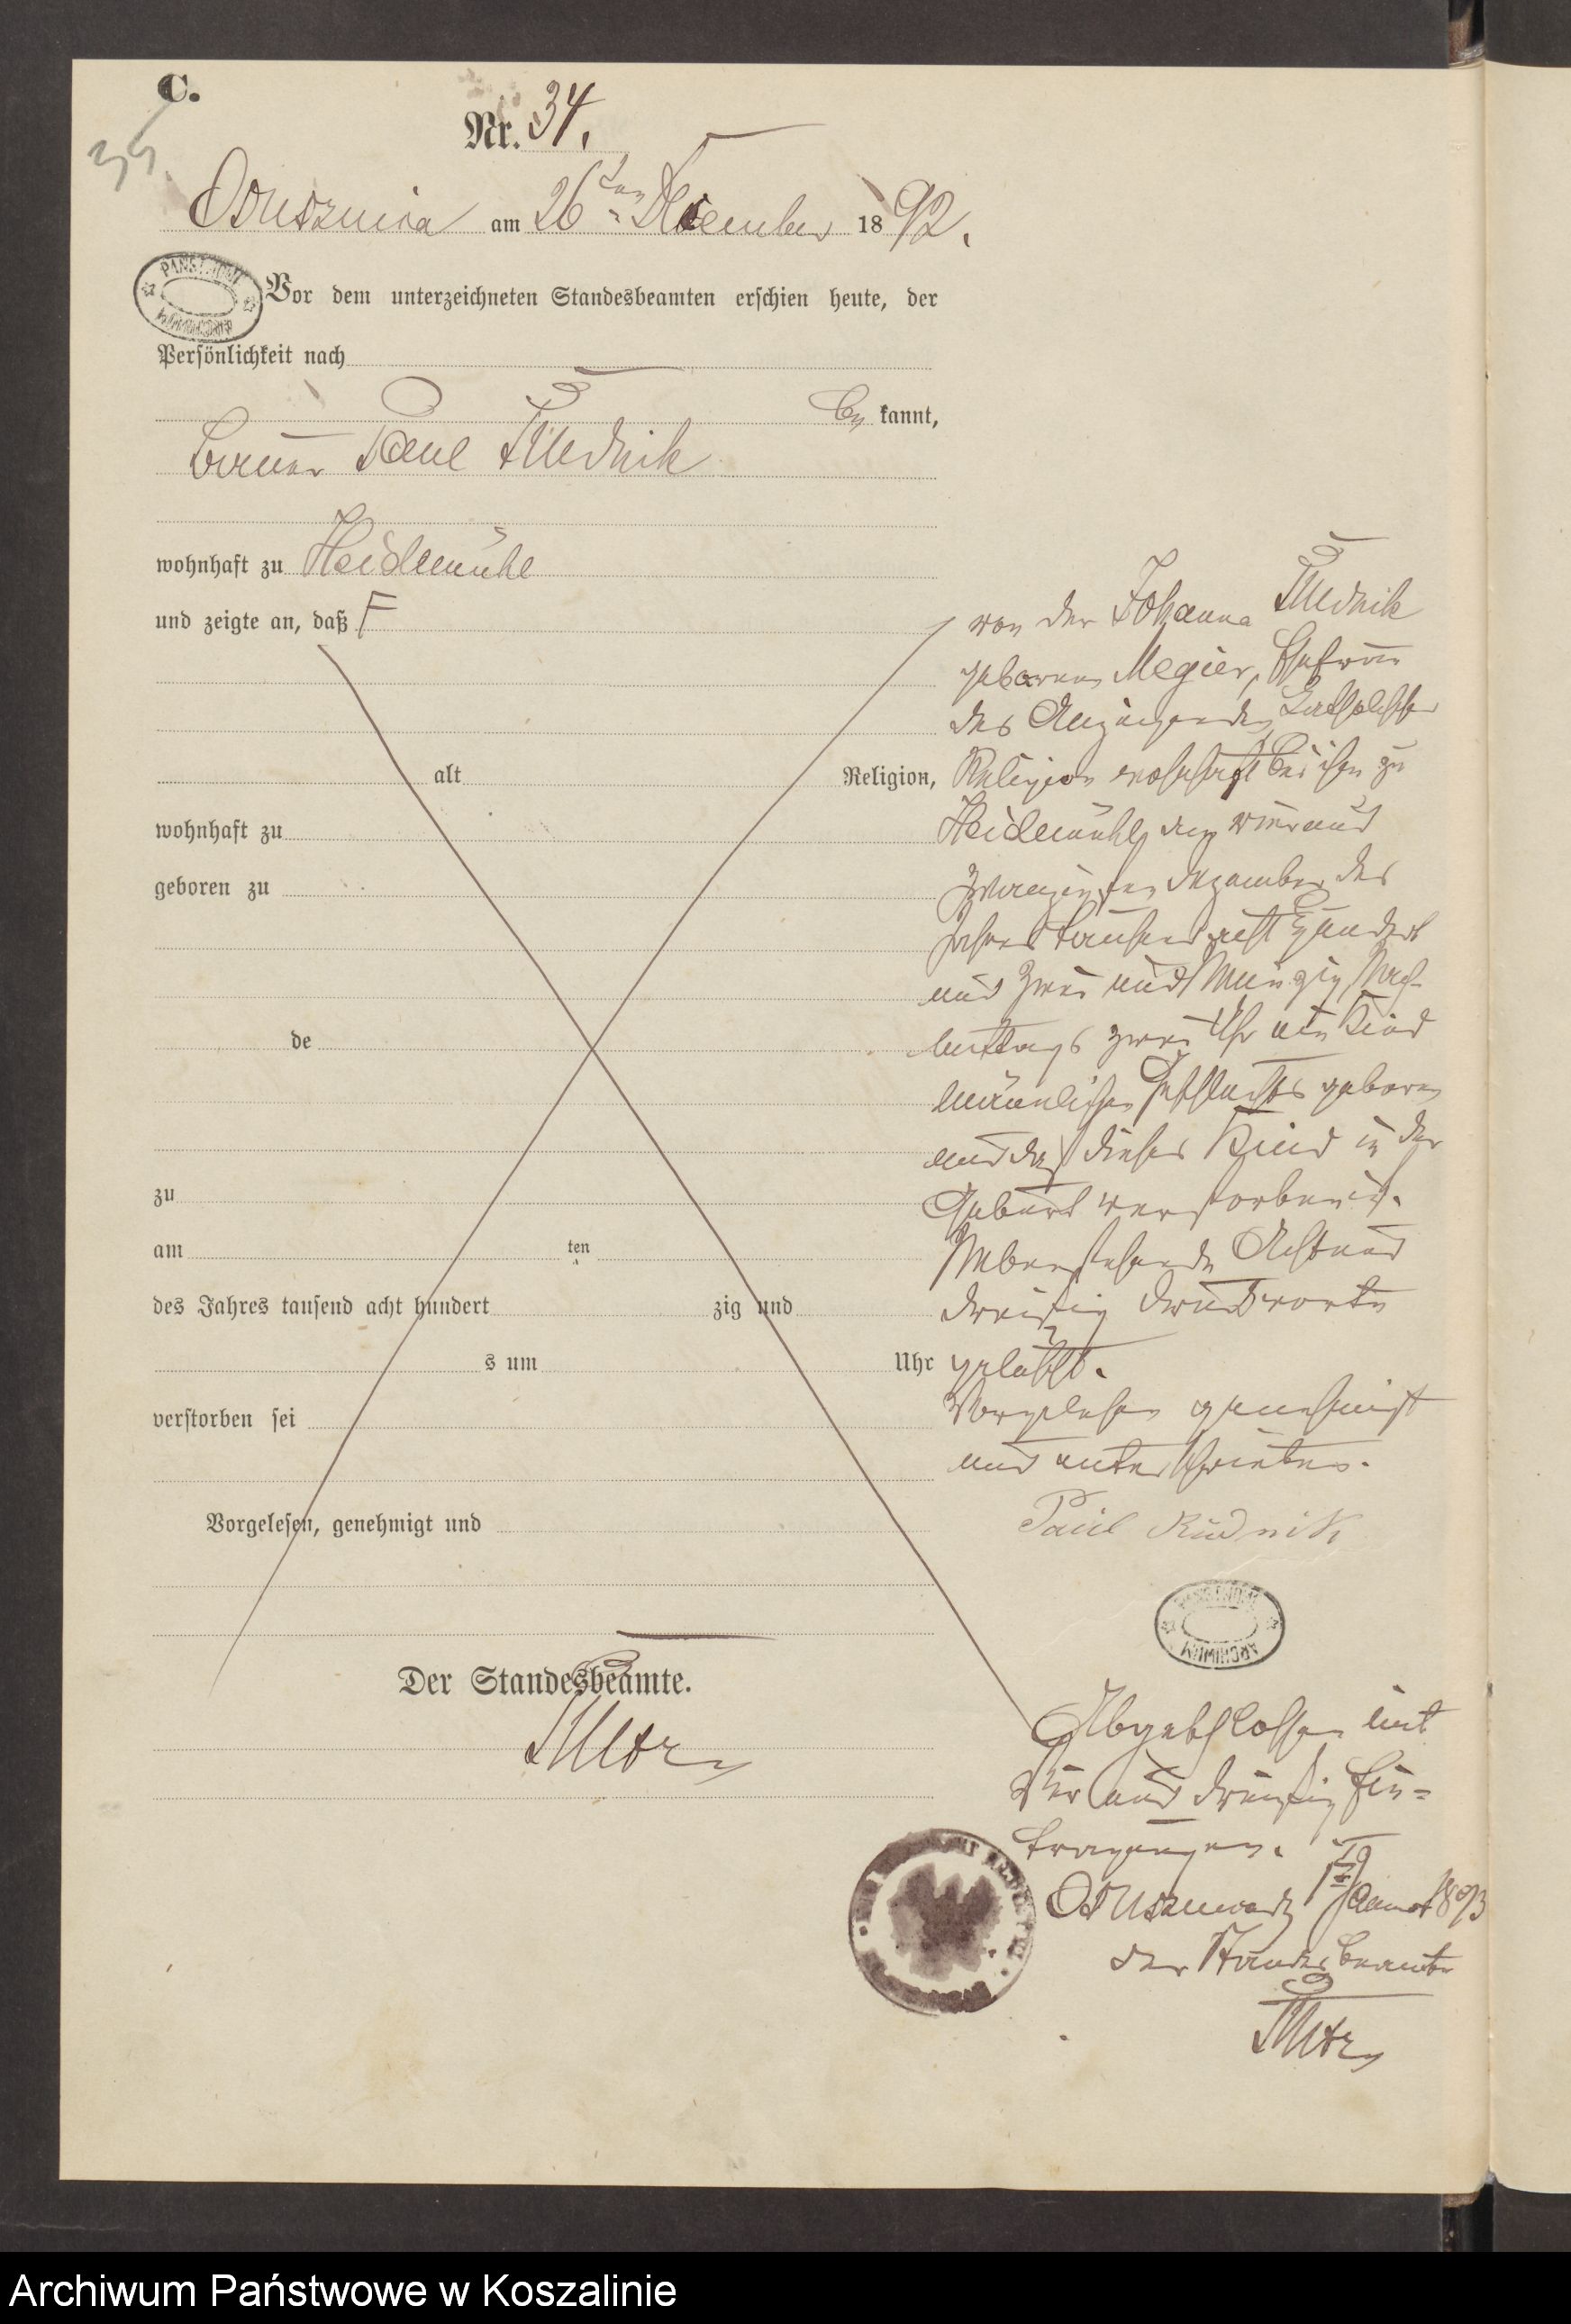 C.
Nr. 34.
35
Ossusznica am 26ten Dezember 1892.
PAŃSTWOWE ARCHIWUM
Vor dem unterzeichneten Standesbeamten erschien heute, der
Persönlichkeit nach
be kannt,
Bauer Paul Rudnik
wohnhaft zu Heidemühl
und zeigte an, daß
alt Religion,
wohnhaft zu
geboren zu
de
zu
am ten
des Jahres tausend acht hundert zig und
s um Uhr
verstorben sei
Vorgelesen, genehmigt und
Der Standesbeamte.
von der Johanna Rudnik
geborenen Megier, Ehefrau
des Anzeigenden, katholischer
Religion wohnhaft bei ihm zu
Heidemühl am vier und
zwanzigsten Dezember des
Jahres tausend acht hundert
und zwei und neunzig Nach-
mittags zwei Uhr ein Kind
männlichen Geschlechts geboren
und daß dieses Kind in der
Geburt verstorben ist.
Nebenstehende Acht und
dreißig Druckworte
gelöscht.
Vorgelesen genehmigt
und unterschrieben.
Paul Rudnik
PAŃSTWOWE ARCHIWUM
Abgeschlossen mit
Vier und dreißig Ein=
tragungen.
Januar 1893
der Standesbeamte
Archiwum Państwowe w Koszalinie